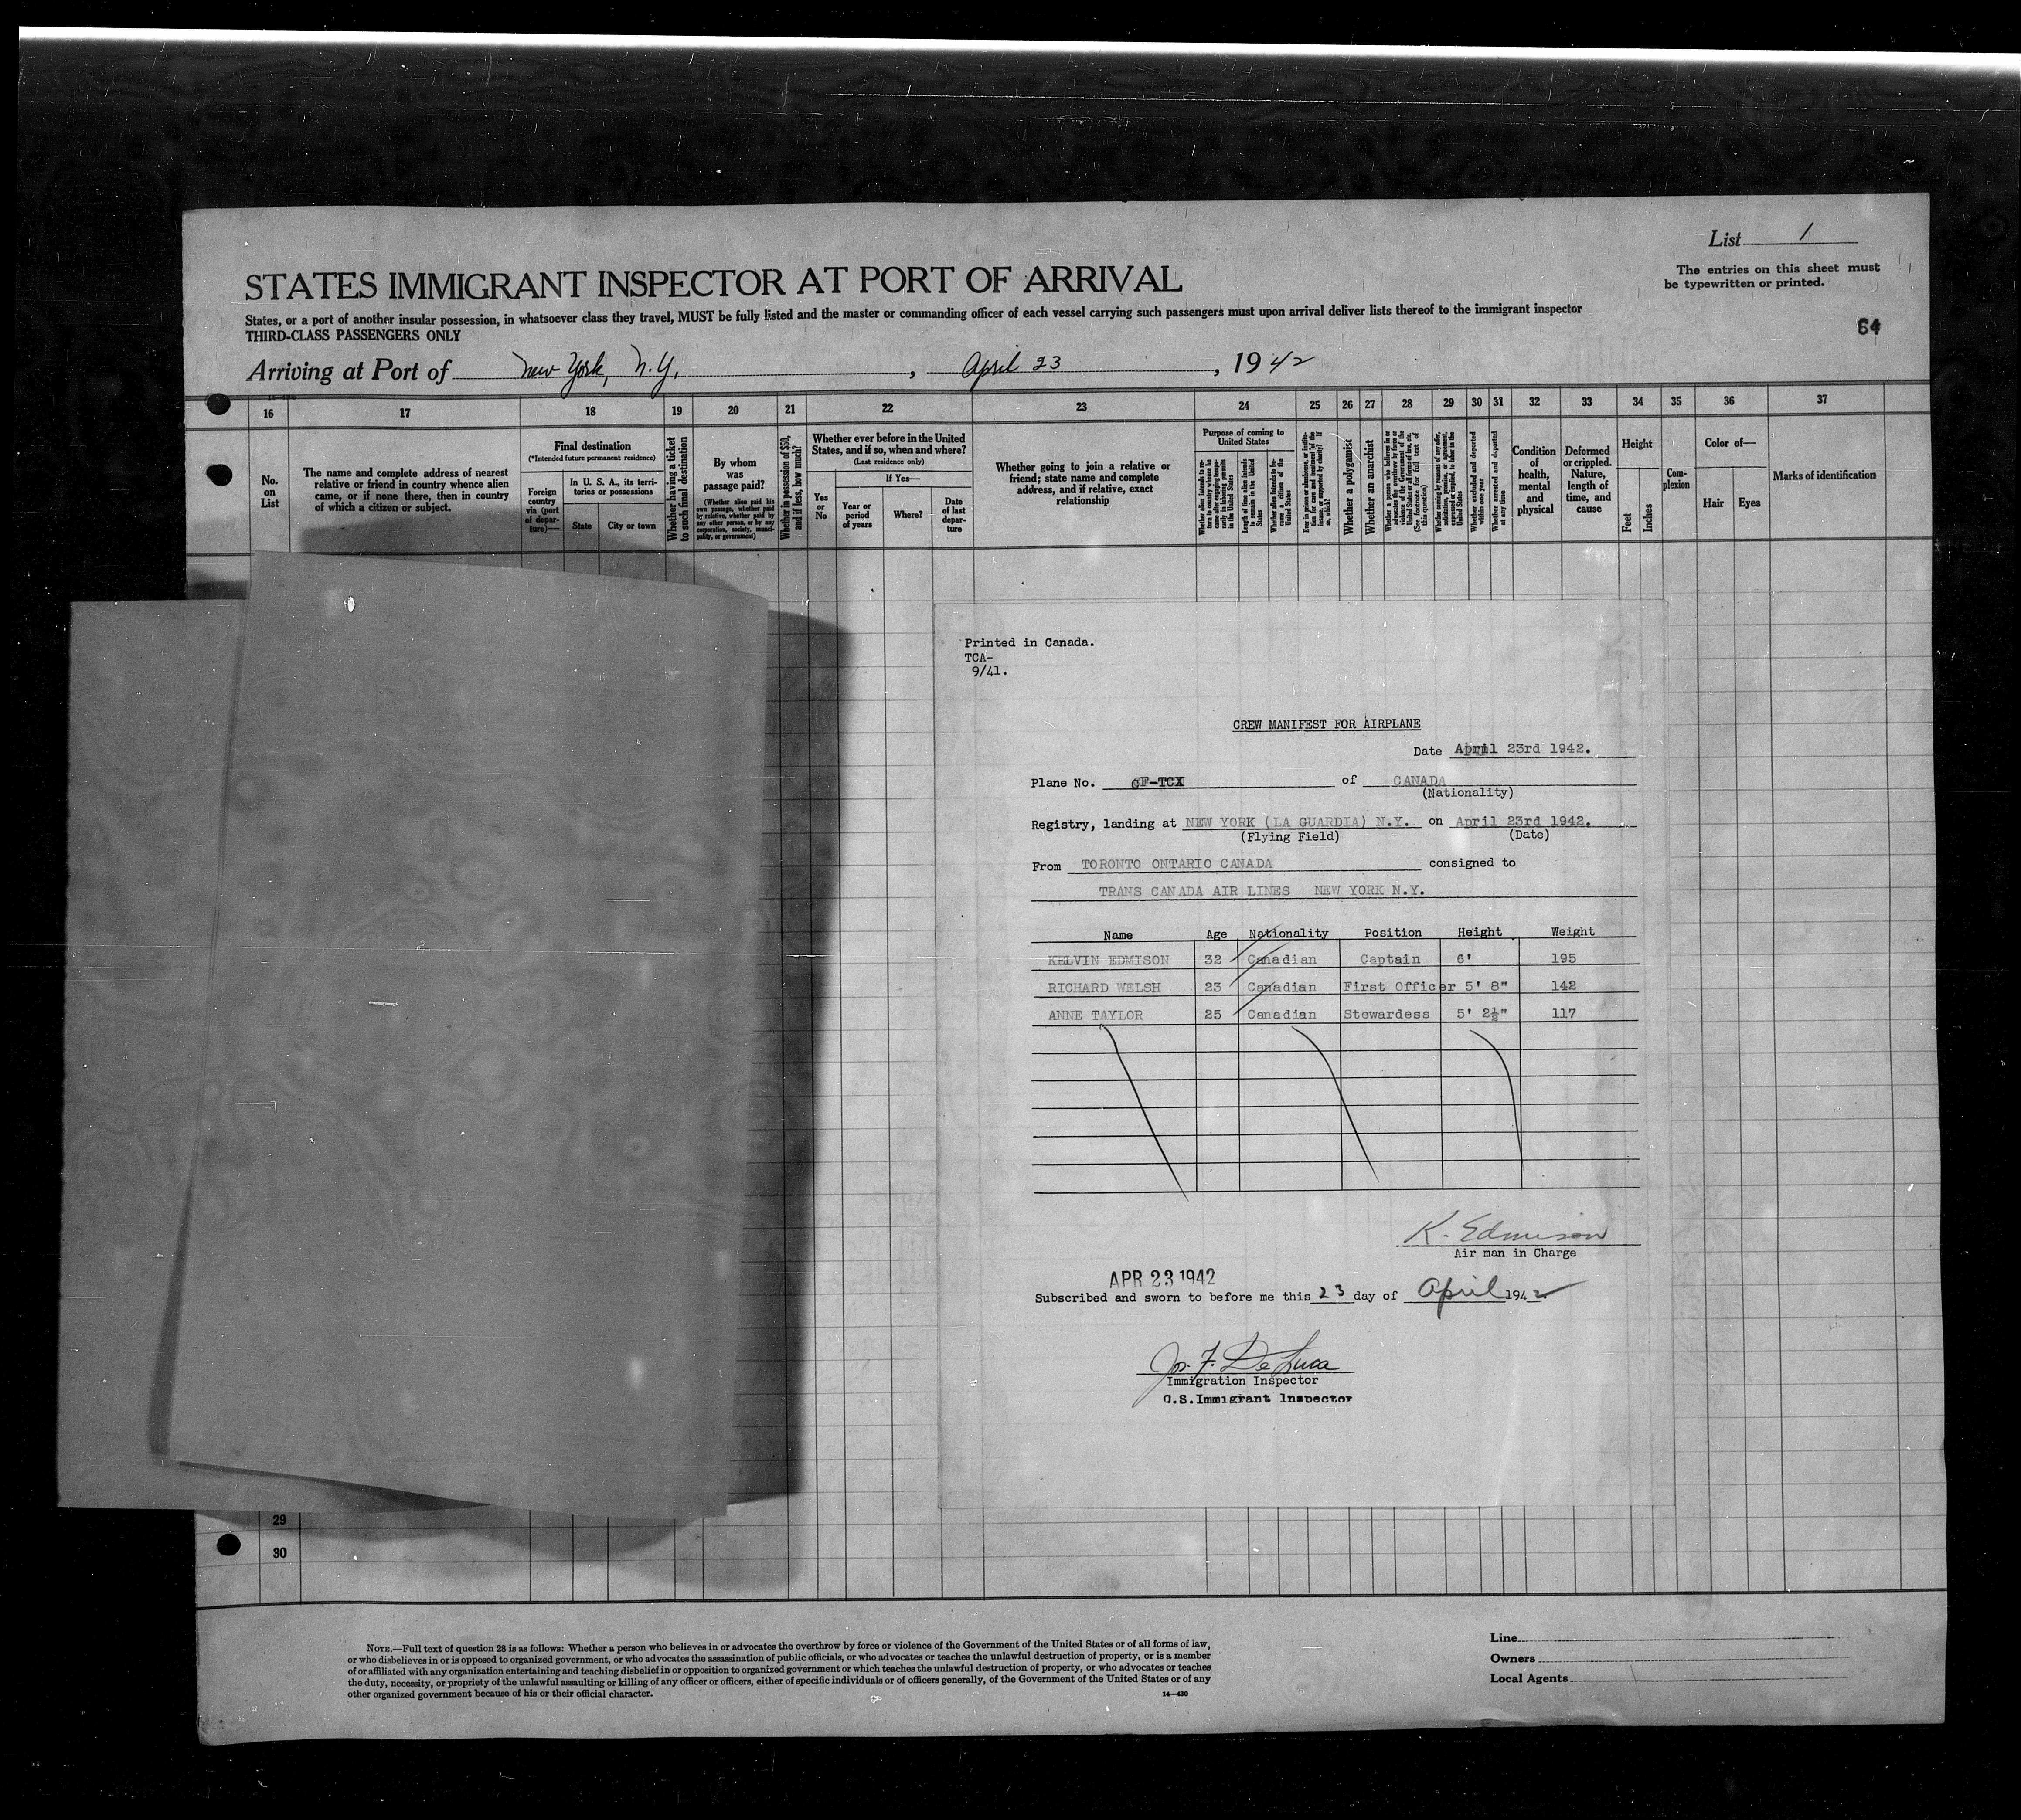 List 1
The entries on this sheet must
be typewritten or printed.
64
STATES IMMIGRANT INSPECTOR AT PORT OF ARRIVAL
States, or a port of another insular possession, in whatsoever class they travel, MUST be fully listed and the master or commanding officer of each vessel carrying such passengers must upon arrival deliver lists thereof to the immigrant inspector
THIRD-CLASS PASSENGERS ONLY
Arriving at Port of New York, N.Y. , April 23 , 1942
16 17 18 19 20 21 22 23 24 25 26 27 28 29 30 31 32 33 34 35 36 37
No.
on
List
The name and complete address of nearest
relative or friend in country whence alien
came, or if none there, then in country
of which a citizen or subject.
Final destination
(*Intended future permanent residence)
Foreign
country
via (port
of depar-
ture)—
In U. S. A., its terri-
tories or possessions
State
City or town
Whether having a ticket
to such final destination
By whom
was
passage paid?
(Whether alien paid his
own passage, whether paid
by relative, whether paid by
any other person, or by any
corporation, society, munici-
pality, or government)
Whether in possession of $50,
and if less, how much?
Whether ever before in the United
States, and if so, when and where?
(Last residence only)
Yes
or
No
If Yes—
Year or
period
of years
Where?
Date
of last
depar-
ture
Whether going to join a relative or
friend; state name and complete
address, and if relative, exact
relationship
Purpose of coming to
United States
Whether a polygamist
Whether an anarchist
Condition
of
health,
mental
and
physical
Deformed
or crippled.
Nature,
length of
time, and
cause
Height
Feet
Inches
Com-
plexion
Color of—
Hair
Eyes
Marks of identification
Printed in Canada.
TCA-
9/41.
CREW MANIFEST FOR AIRPLANE
Date April 23rd 1942.
Plane No. CF-TCX of CANADA
(Nationality)
Registry, landing at NEW YORK (LA GUARDIA) N.Y. on April 23rd 1942.
(Flying Field) (Date)
From TORONTO ONTARIO CANADA consigned to
TRANS CANADA AIR LINES NEW YORK N.Y.
Name Age Nationality Position Height Weight
KELVIN EDMISON 32 Canadian Captain 6' 195
RICHARD WELSH 23 Canadian First Officer 5' 8" 142
ANNE TAYLOR 25 Canadian Stewardess 5' 2½" 117
K. Edmison
Air man in Charge
APR 23 1942
Subscribed and sworn to before me this 23 day of April 1942
Jos. F. De Luca
Immigration Inspector
U.S. Immigrant Inspector
29
30
NOTE.—Full text of question 28 is as follows: Whether a person who believes in or advocates the overthrow by force or violence of the Government of the United States or of all forms of law,
or who disbelieves in or is opposed to organized government, or who advocates the assassination of public officials, or who advocates or teaches the unlawful destruction of property, or is a member
of or affiliated with any organization entertaining and teaching disbelief in or opposition to organized government or which teaches the unlawful destruction of property, or who advocates or teaches
the duty, necessity, or propriety of the unlawful assaulting or killing of any officer or officers, either of specific individuals or of officers generally, of the Government of the United States or of any
other organized government because of his or their official character.
14—430
Line
Owners
Local Agents